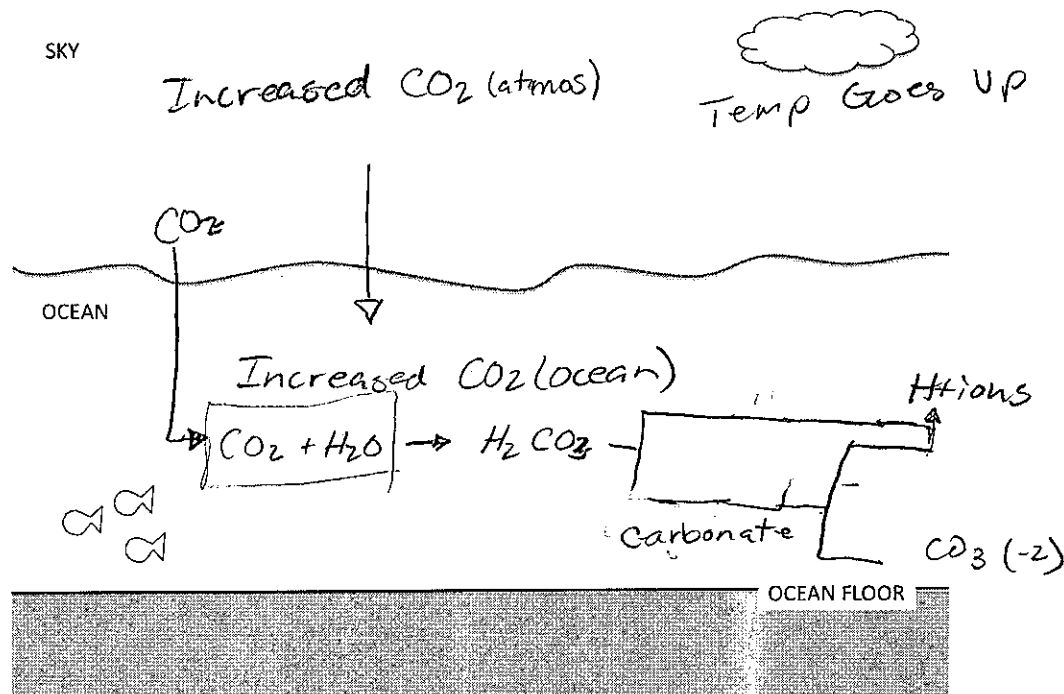 SKY
Increased CO2 (atmos)
Temp Goes Up
CO2
OCEAN
Increased CO2 (ocean)
H+ions
CO2 + H2O → H2CO3
Carbonate
CO3 (-2)
OCEAN FLOOR